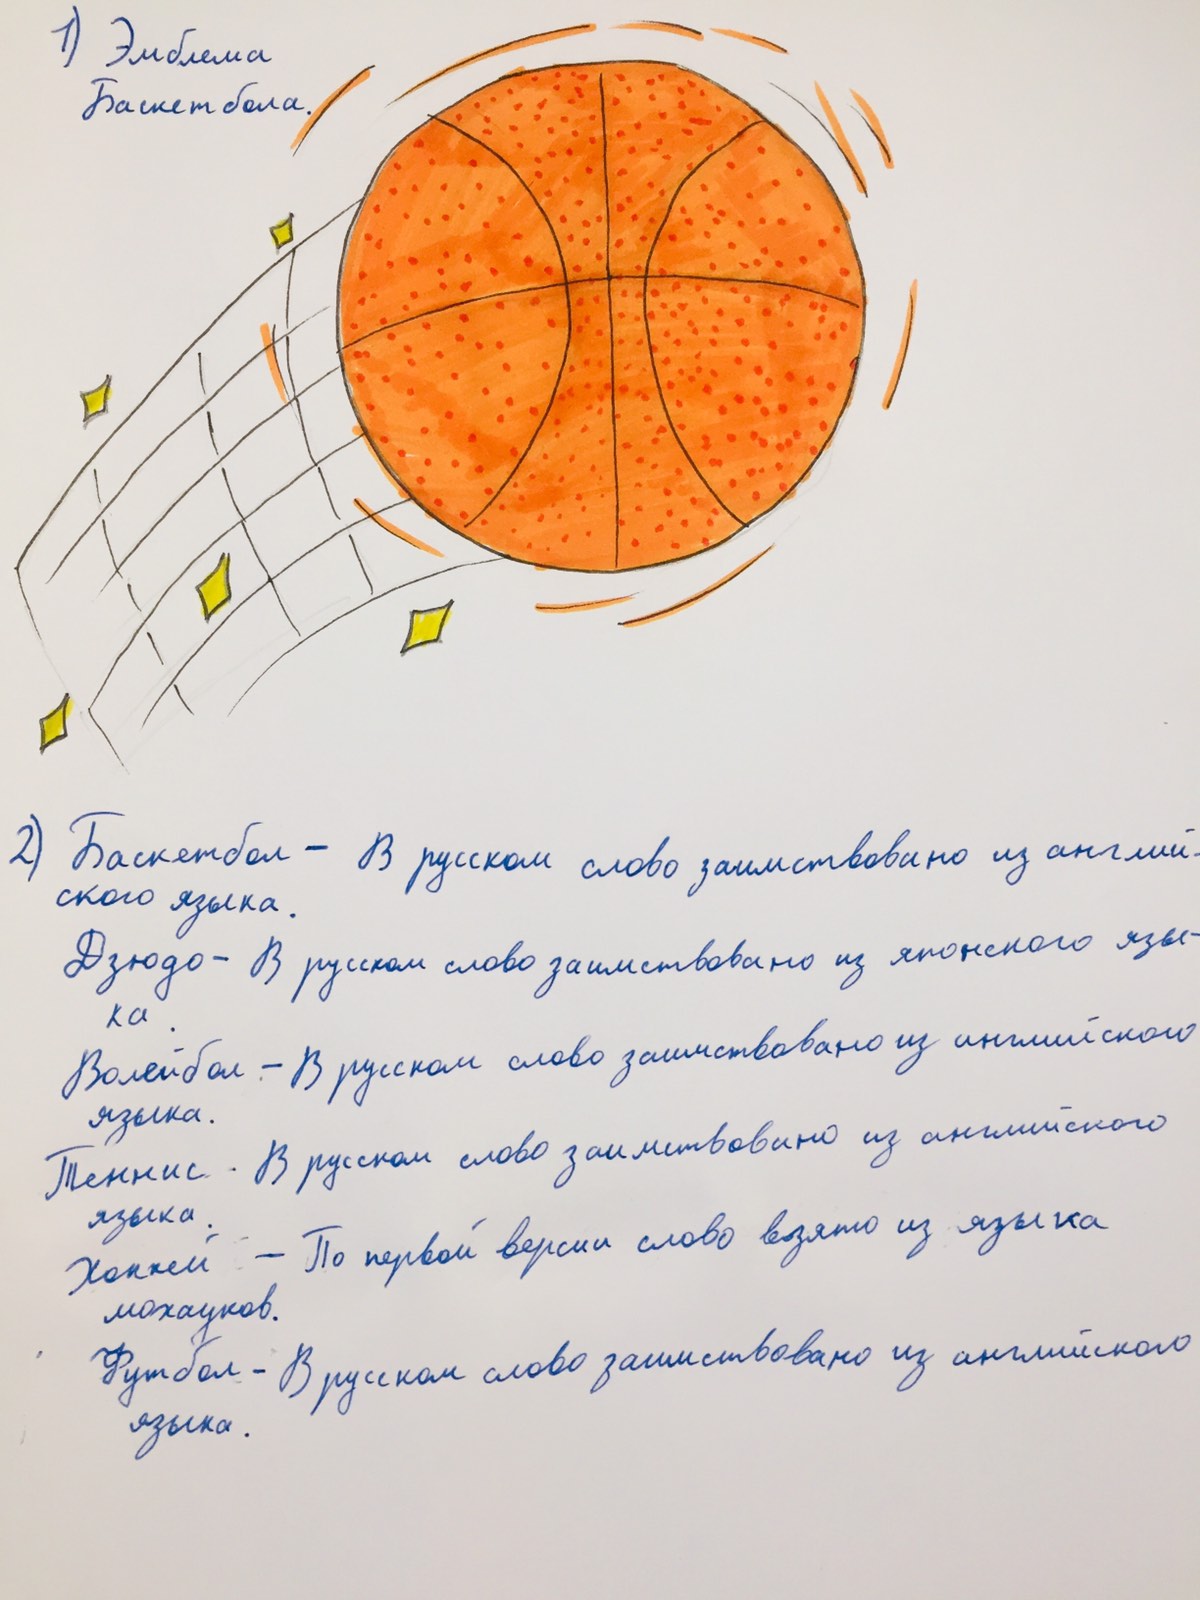 1) Эмблема
Баскетбола.
2) Баскетбол - В русском слово заимствовано из англий-
ского языка.
Дзюдо - В русском слово заимствовано из японского язы-
ка.
Волейбол - В русском слово заимствовано из английского
языка.
Теннис - В русском слово заимствовано из английского
языка.
Хоккей - По первой версии слово взято из языка
мохауков.
Футбол - В русском слово заимствовано из английского
языка.